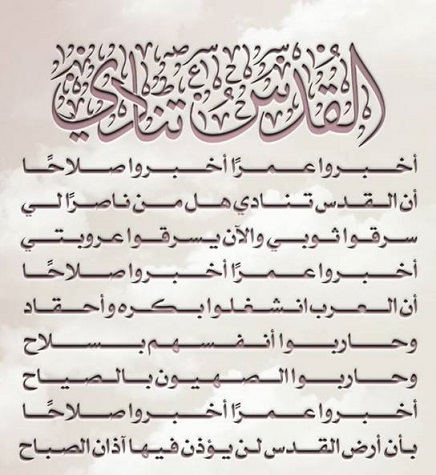 القدس تنادي
أخبروا عمرًا أخبروا صلاحًا
أن القدس تنادي هل من ناصرًا لي
سرقوا ثوبي والآن يسرقوا عروبتي
أخبروا عمرًا أخبروا صلاحًا
أن العرب انشغلوا بكره وأحقاد
وحاربوا أنفسهم بسلاح
وحاربوا الصهيون بالصياح
أخبروا عمرًا أخبروا صلاحًا
بأن أرض القدس لن يؤذن فيها آذان الصباح